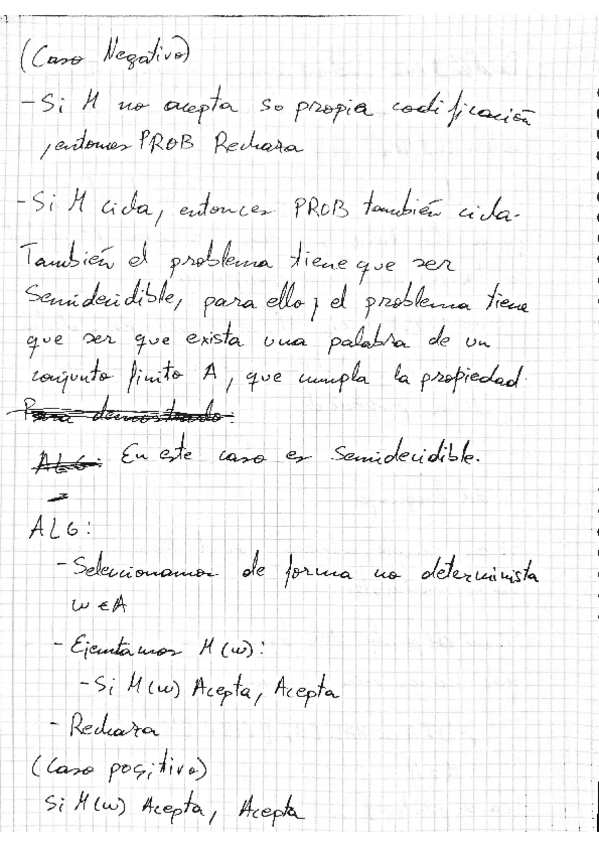 (Caso Negativo)
- Si M no acepta so propia codificación
, entonces PROB Rechaza
- Si M cicla, entonces PROB también cicla.
También el problema tiene que ser
Semidecidible, para ello, el problema tiene
que ser que exista una palabra de un
conjunto finito A, que cumpla la propiedad.
Para demostrado.
ALG: En este caso es Semidecidible.
ALG:
- Seleccionamos de forma no determinista
w ∈ A
- Ejecutamos M(w):
- Si M(w) Acepta, Acepta
- Rechaza
(Caso positivo)
Si M(w) Acepta, Acepta